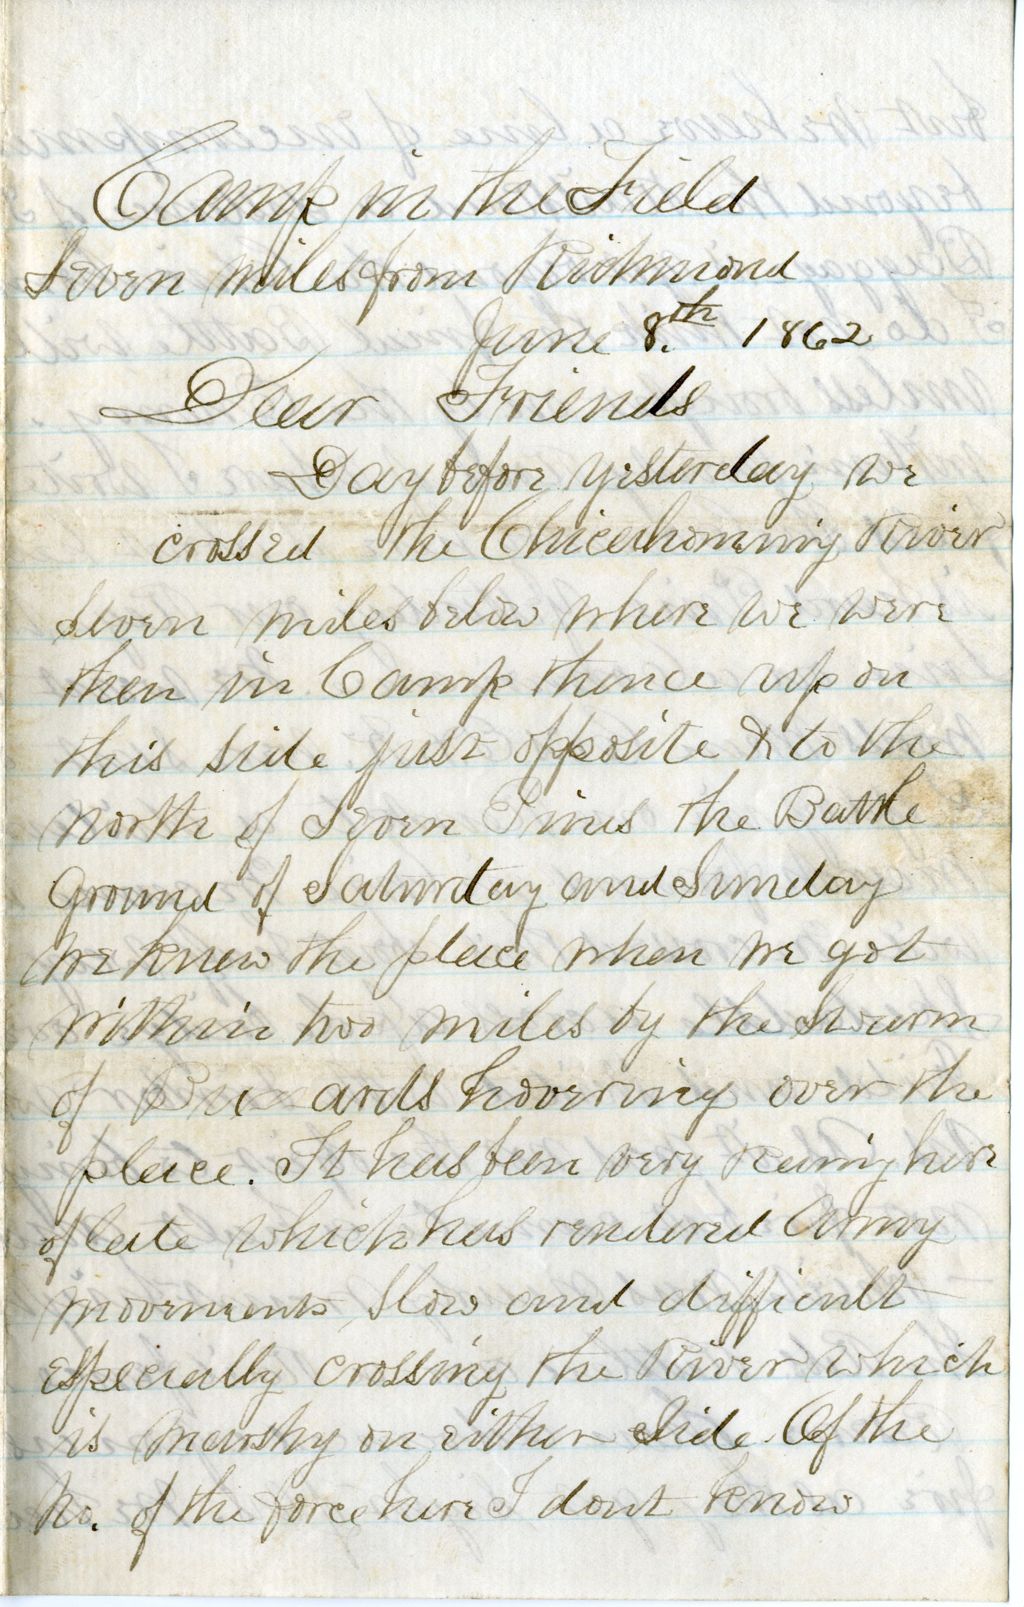 Camp in the Field
Seven miles from Richmond
June 8.th 1862
Dear Friends
Day before yesterday we
crossed the Chicahominy River
seven miles below where we were
then in Camp thence up on
this side just opposite & to the
north of Seven Pines the Battle
Ground of Saturday and Sunday
we knew the place when we got
within two miles by the Swarm
of Buzzards hoovering over the
place. It has been very rainy here
of late which has rendered Army
movements slow and difficult
especially crossing the River which
is marshy on either side. Of the
No. of the force here I dont know